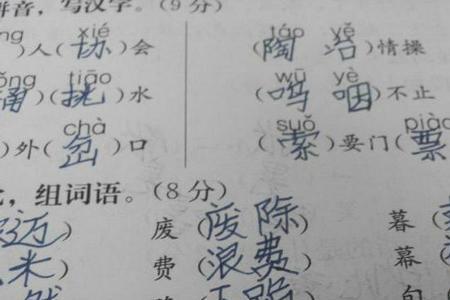 拼音，写汉字。（9分）
xié táo yě
）人（协）会 （陶冶）情操
tiāo wū yè
）（挑）水 （呜咽）不止
chà suǒ piào
）外（岔）口 （索）要门（票
，组词语。（8分）
迈） 废（废除） 暮（
米） 费（浪费） 幕（